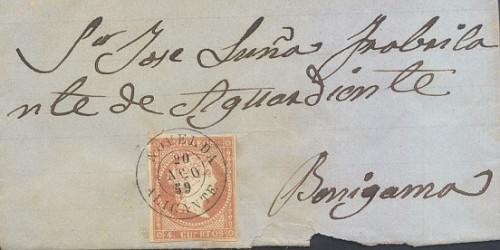 Sor Jose Luña Frabrica
nte de Aguardiente
Benigama
NOVELDA
20
AGO
59
ALICANTE
4 CUARTOS